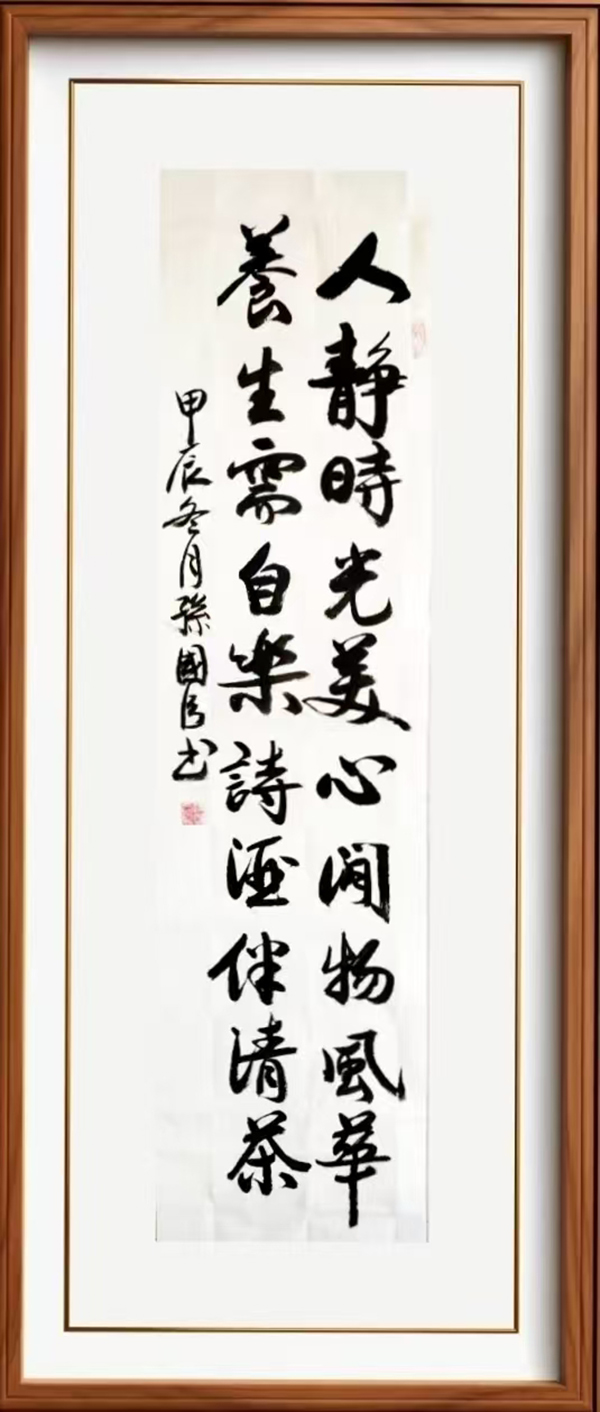 人靜時光美心閒物風華
養生需自樂詩酒伴清茶
甲辰冬月孫國信书